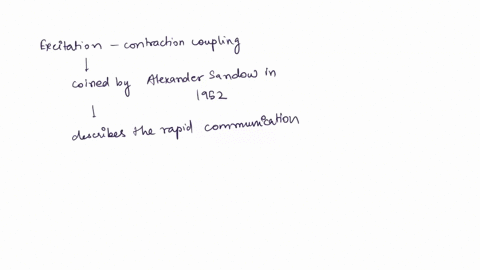 Excitation - contraction coupling
coined by Alexander Sandow in
1952
describes the rapid communication